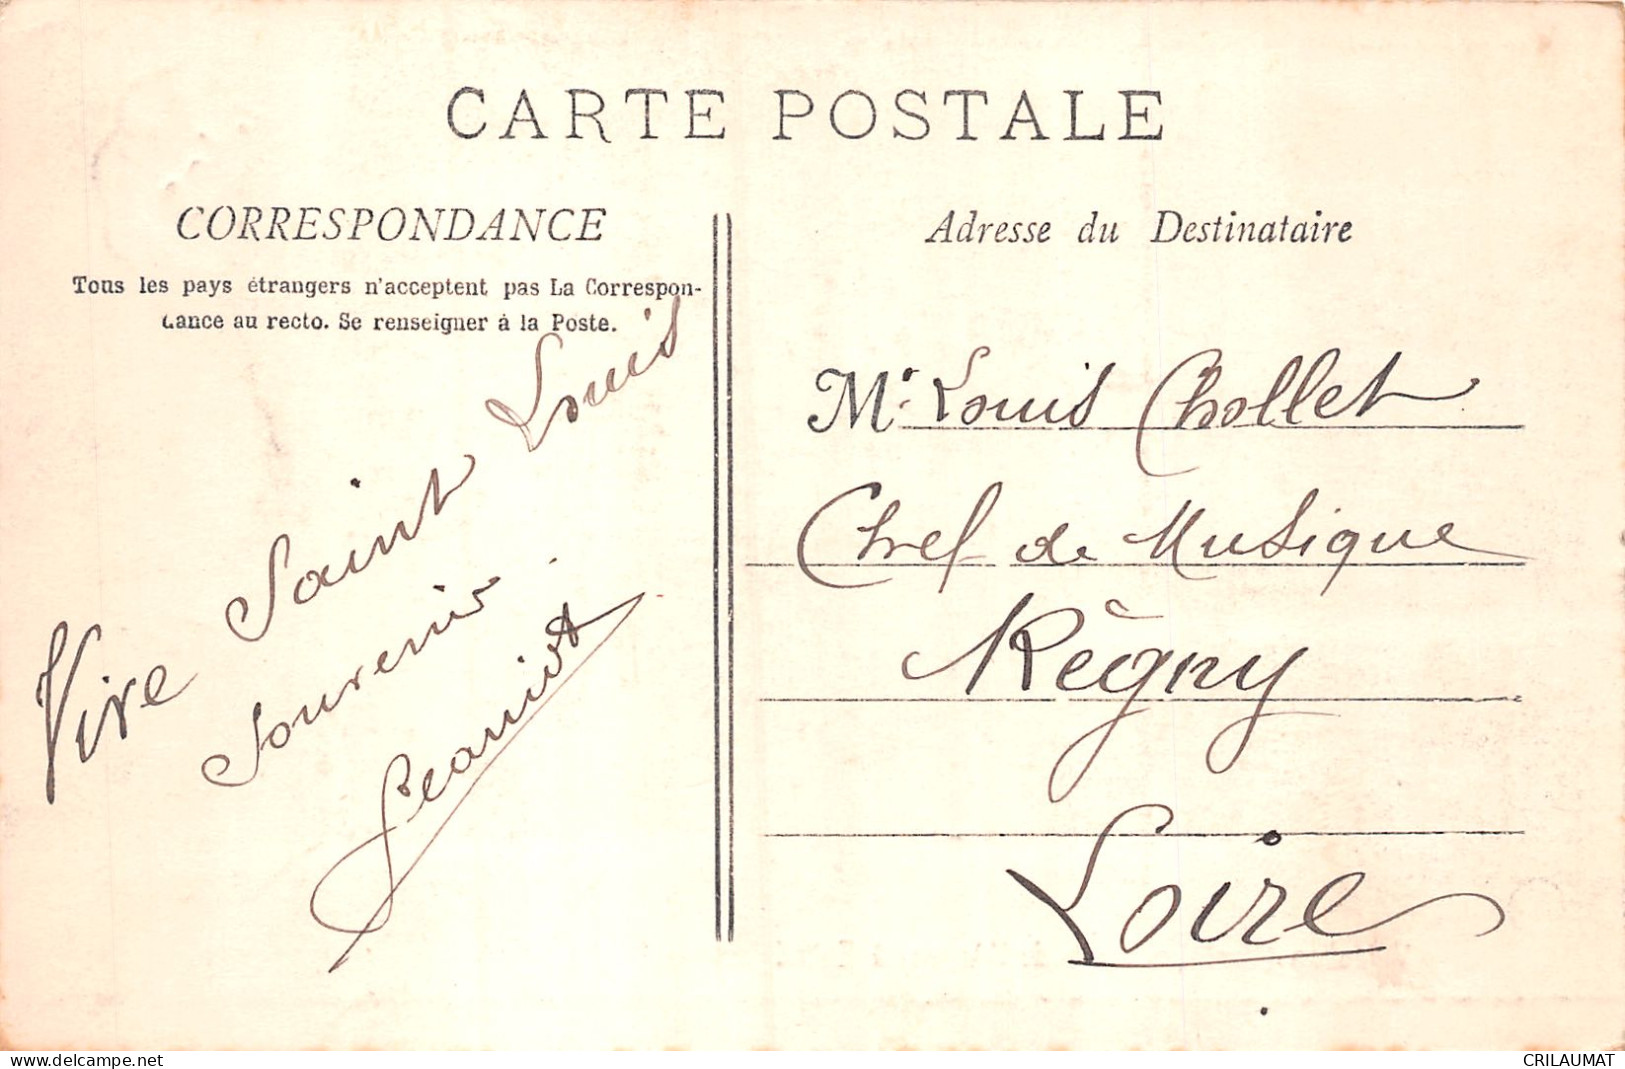 CARTE POSTALE
CORRESPONDANCE
Tous les pays étrangers n'acceptent pas La Correspon-
dance au recto. Se renseigner à la Poste.
Vive Saint Louis
Souvenir
Adresse du Destinataire
Mr. Louis Chollet
Chef de Musique
Régny
Loire
www.delcampe.net
CRILAUMAT